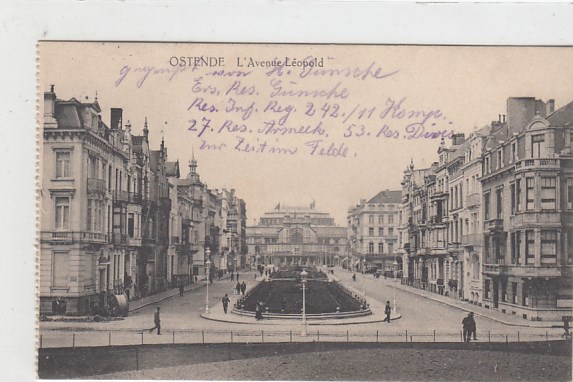 OSTENDE L'Avenue Léopold
von H. Günsche
Ers. Res. Günsche
Res. Inf. Reg. 242./11 Komp.
27. Res. Armeek. 53. Res. Divis
zur Zeit im Felde.